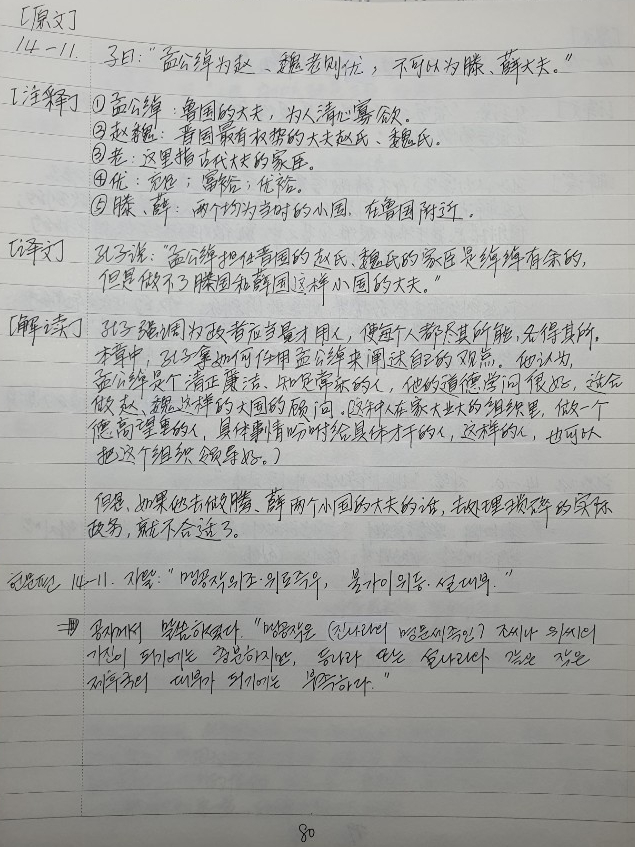 [原文]
14-11. 子曰:"孟公绰为赵、魏老则优,不可以为滕、薛大夫。"
[注释] ①孟公绰:鲁国的大夫,为人清心寡欲。
②赵魏:晋国最有权势的大夫赵氏、魏氏。
③老:这里指古代大夫的家臣。
④优:充足;富裕;优裕。
⑤滕、薛:两个均为当时的小国,在鲁国附近。
[译文] 孔子说:"孟公绰担任晋国的赵氏、魏氏的家臣是绰绰有余的,
但是做不了滕国和薛国这样小国的大夫。"
[解读] 孔子强调为政者应当量才用人,使每个人都尽其所能,各得其所。
本章中,孔子要如何任用孟公绰来阐述自己的观点。他认为,
孟公绰是个清正廉洁、知足常乐的人,他的道德学问很好,适合
做赵、魏这样的大国的顾问。(这种人在家大业大的组织里,做一个
德高望重的人,具体事情吩咐给具体才干的人,这样的人,也可以
把这个组织领导好。)
但是,如果他去做腾、薛两个小国的大夫的话,去处理琐碎的实际
政务,就不合适了。
헌문편 14-11. 자왈:"맹공작위조·위로즉우, 불가이위등·설대부."
⇒ 공자께서 말씀하셨다. "맹공작은 (진나라의 명문세족인) 조씨나 위씨의
가신이 되기에는 충분하지만, 등나라 또는 설나라와 같은 작은
제후국의 대부가 되기에는 부족하다."
80